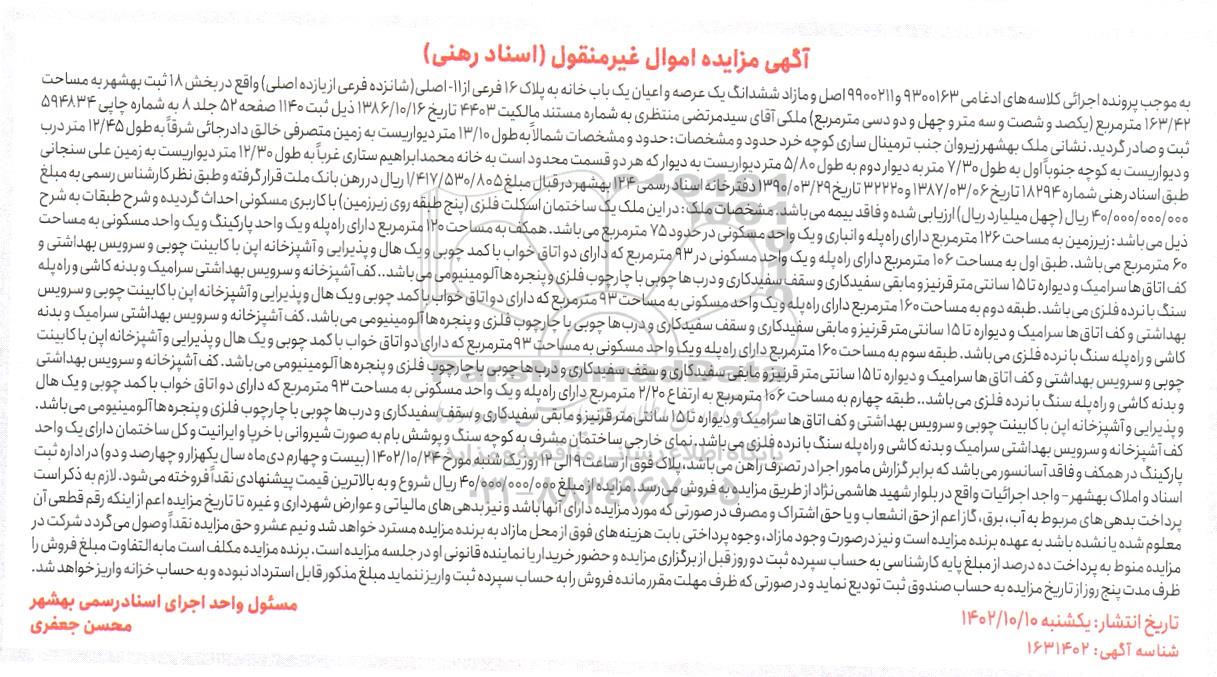 آگهی مزایده اموال غیرمنقول (اسناد رهنی)
به موجب پرونده اجرائی کلاسه‌های ادغامی ۹۳۰۰۱۶۳ و ۹۹۰۰۲۱۱ اصل و مازاد ششدانگ یک عرصه و اعیان یک باب خانه به پلاک ۱۶ فرعی از ۱۱- اصلی (شانزده فرعی از یازده اصلی) واقع در بخش ۱۸ ثبت بهشهر به مساحت
۱۶۳/۴۲ مترمربع (یکصد و شصت و سه متر و چهل و دو دسی مترمربع) ملکی آقای سیدمرتضی منتظری به شماره مستند مالکیت ۴۴۰۳ تاریخ ۱۳۸۶/۱۰/۱۶ ذیل ثبت ۱۱۴۰ صفحه ۵۲ جلد ۸ به شماره چاپی ۵۹۴۸۳۴
ثبت و صادر گردید. نشانی ملک بهشهر زیروان جنب ترمینال ساری کوچه خرد حدود و مشخصات: حدود و مشخصات شمالاً به طول ۱۳/۱۰ متر دیواریست به زمین متصرفی خالق دادرجائی شرقاً به طول ۱۲/۴۵ متر درب
و دیواریست به کوچه جنوباً اول به طول ۷/۳۰ متر به دیوار دوم به طول ۵/۸۰ متر دیواریست به دیوار که هر دو قسمت محدود است به خانه محمدابراهیم ستاری غرباً به طول ۱۲/۳۰ متر دیواریست به زمین علی سنجانی
طبق اسناد رهنی شماره ۱۸۲۹۴ تاریخ ۱۳۸۷/۰۳/۰۶ و ۳۲۲۲۰ تاریخ ۱۳۹۰/۰۳/۲۹ دفترخانه اسناد رسمی ۱۲۴ بهشهر در قبال مبلغ ۱/۴۱۷/۵۳۰/۸۰۵ ریال در رهن بانک ملت قرار گرفته و طبق نظر کارشناس رسمی به مبلغ
۴۰/۰۰۰/۰۰۰/۰۰۰ ریال (چهل میلیارد ریال) ارزیابی شده و فاقد بیمه می باشد. مشخصات ملک: در این ملک یک ساختمان اسکلت فلزی (پنج طبقه روی زیرزمین) با کاربری مسکونی احداث گردیده و شرح طبقات به شرح
ذیل می باشد: زیرزمین به مساحت ۱۲۶ مترمربع دارای راه پله و انباری و یک واحد مسکونی در حدود ۷۵ مترمربع می باشد. همکف به مساحت ۱۲۰ مترمربع دارای راه پله و یک واحد پارکینگ و یک واحد مسکونی به مساحت
۶۰ مترمربع می باشد. طبق اول به مساحت ۱۰۶ مترمربع دارای راه پله و یک واحد مسکونی در ۹۳ مترمربع که دارای دو اتاق خواب با کمد چوبی و یک هال و پذیرایی و آشپزخانه اپن با کابینت چوبی و سرویس بهداشتی و
کف اتاق ها سرامیک و دیواره تا ۱۵ سانتی متر قرنیز و مابقی سفیدکاری و سقف سفیدکاری و درب ها چوبی با چارچوب فلزی و پنجره ها آلومینیومی می باشد.. کف آشپزخانه و سرویس بهداشتی سرامیک و بدنه کاشی و راه پله
سنگ با نرده فلزی می باشد. طبقه دوم به مساحت ۱۶۰ مترمربع دارای راه پله و یک واحد مسکونی به مساحت ۹۳ مترمربع که دارای دو اتاق خواب با کمد چوبی و یک هال و پذیرایی و آشپزخانه اپن با کابینت چوبی و سرویس
بهداشتی و کف اتاق ها سرامیک و دیواره تا ۱۵ سانتی متر قرنیز و مابقی سفیدکاری و سقف سفیدکاری و درب ها چوبی با چارچوب فلزی و پنجره ها آلومینیومی می باشد. کف آشپزخانه و سرویس بهداشتی سرامیک و بدنه
کاشی و راه پله سنگ با نرده فلزی می باشد. طبقه سوم به مساحت ۱۶۰ مترمربع دارای راه پله و یک واحد مسکونی به مساحت ۹۳ مترمربع که دارای دو اتاق خواب با کمد چوبی و یک هال و پذیرایی و آشپزخانه اپن با کابینت
چوبی و سرویس بهداشتی و کف اتاق ها سرامیک و دیواره تا ۱۵ سانتی متر قرنیز و مابقی سفیدکاری و سقف سفیدکاری و درب ها چوبی با چارچوب فلزی و پنجره ها آلومینیومی می باشد. کف آشپزخانه و سرویس بهداشتی
و بدنه کاشی و راه پله سنگ با نرده فلزی می باشد.. طبقه چهارم به مساحت ۱۰۶ مترمربع به ارتفاع ۲/۲۰ مترمربع دارای راه پله و یک واحد مسکونی به مساحت ۹۳ مترمربع که دارای دو اتاق خواب با کمد چوبی و یک هال
و پذیرایی و آشپزخانه اپن با کابینت چوبی و سرویس بهداشتی و کف اتاق ها سرامیک و دیواره تا ۱۵ سانتی متر قرنیز و مابقی سفیدکاری و سقف سفیدکاری و درب ها چوبی با چارچوب فلزی و پنجره ها آلومینیومی می باشد.
کف آشپزخانه و سرویس بهداشتی سرامیک و بدنه کاشی و راه پله سنگ با نرده فلزی می باشد. نمای خارجی ساختمان مشرف به کوچه سنگ و پوشش بام به صورت شیروانی با خرپا و ایرانیت و کل ساختمان دارای یک واحد
پارکینگ در همکف و فاقد آسانسور می باشد که برابر گزارش مامور اجرا در تصرف راهن می باشد. پلاک فوق از ساعت ۹ الی ۱۲ روز یک شنبه مورخ ۱۴۰۲/۱۰/۲۴ (بیست و چهارم دی ماه سال یکهزار و چهارصد و دو) در اداره ثبت
اسناد و املاک بهشهر - واجد اجرائیات واقع در بلوار شهید هاشمی نژاد از طریق مزایده به فروش می رسد. مزایده از مبلغ ۴۰/۰۰۰/۰۰۰/۰۰۰ ریال شروع و به بالاترین قیمت پیشنهادی نقداً فروخته می شود. لازم به ذکر است
پرداخت بدهی های مربوط به آب، برق، گاز اعم از حق انشعاب و یا حق اشتراک و مصرف در صورتی که مورد مزایده دارای آنها باشد و نیز بدهی های مالیاتی و عوارض شهرداری و غیره تا تاریخ مزایده اعم از اینکه رقم قطعی آن
معلوم شده یا نشده باشد به عهده برنده مزایده است و نیز درصورت وجود مازاد، وجوه پرداختی بابت هزینه های فوق از محل مازاد به برنده مزایده مسترد خواهد شد و نیم عشر و حق مزایده نقداً وصول می گردد شرکت در
مزایده منوط به پرداخت ده درصد از مبلغ پایه کارشناسی به حساب سپرده ثبت دو روز قبل از برگزاری مزایده و حضور خریدار یا نماینده قانونی او در جلسه مزایده است. برنده مزایده مکلف است مابه التفاوت مبلغ فروش را
ظرف مدت پنج روز از تاریخ مزایده به حساب صندوق ثبت تودیع نماید و در صورتی که ظرف مهلت مقرر مانده فروش را به حساب سپرده ثبت واریز ننماید مبلغ مذکور قابل استرداد نبوده و به حساب خزانه واریز خواهد شد.
تاریخ انتشار: یکشنبه ۱۴۰۲/۱۰/۱۰
شناسه آگهی: ۱۶۳۱۴۰۲
مسئول واحد اجرای اسناد رسمی بهشهر
محسن جعفری
ParsNamadData
پایگاه اطلاع رسانی مناقصه و مزایده